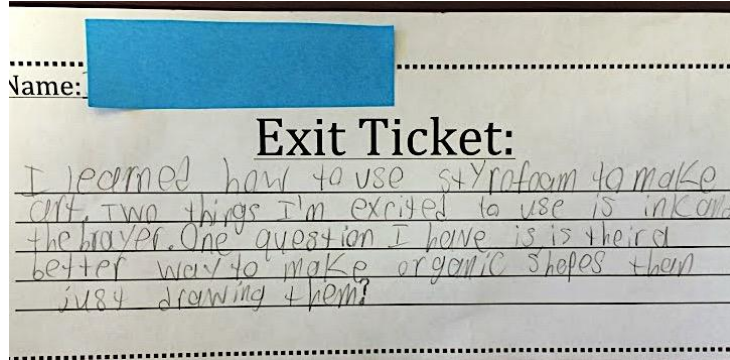 Name:
Exit Ticket:
I learned how to use styrofoam to make
art. Two things I'm excited to use is ink and
the brayer. One question I have is is their a
better way to make organic shapes then
just drawing them?